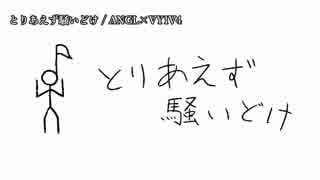 とりあえず騒いどけ / ANGL×VY1V4
とりあえず
騒いどけ